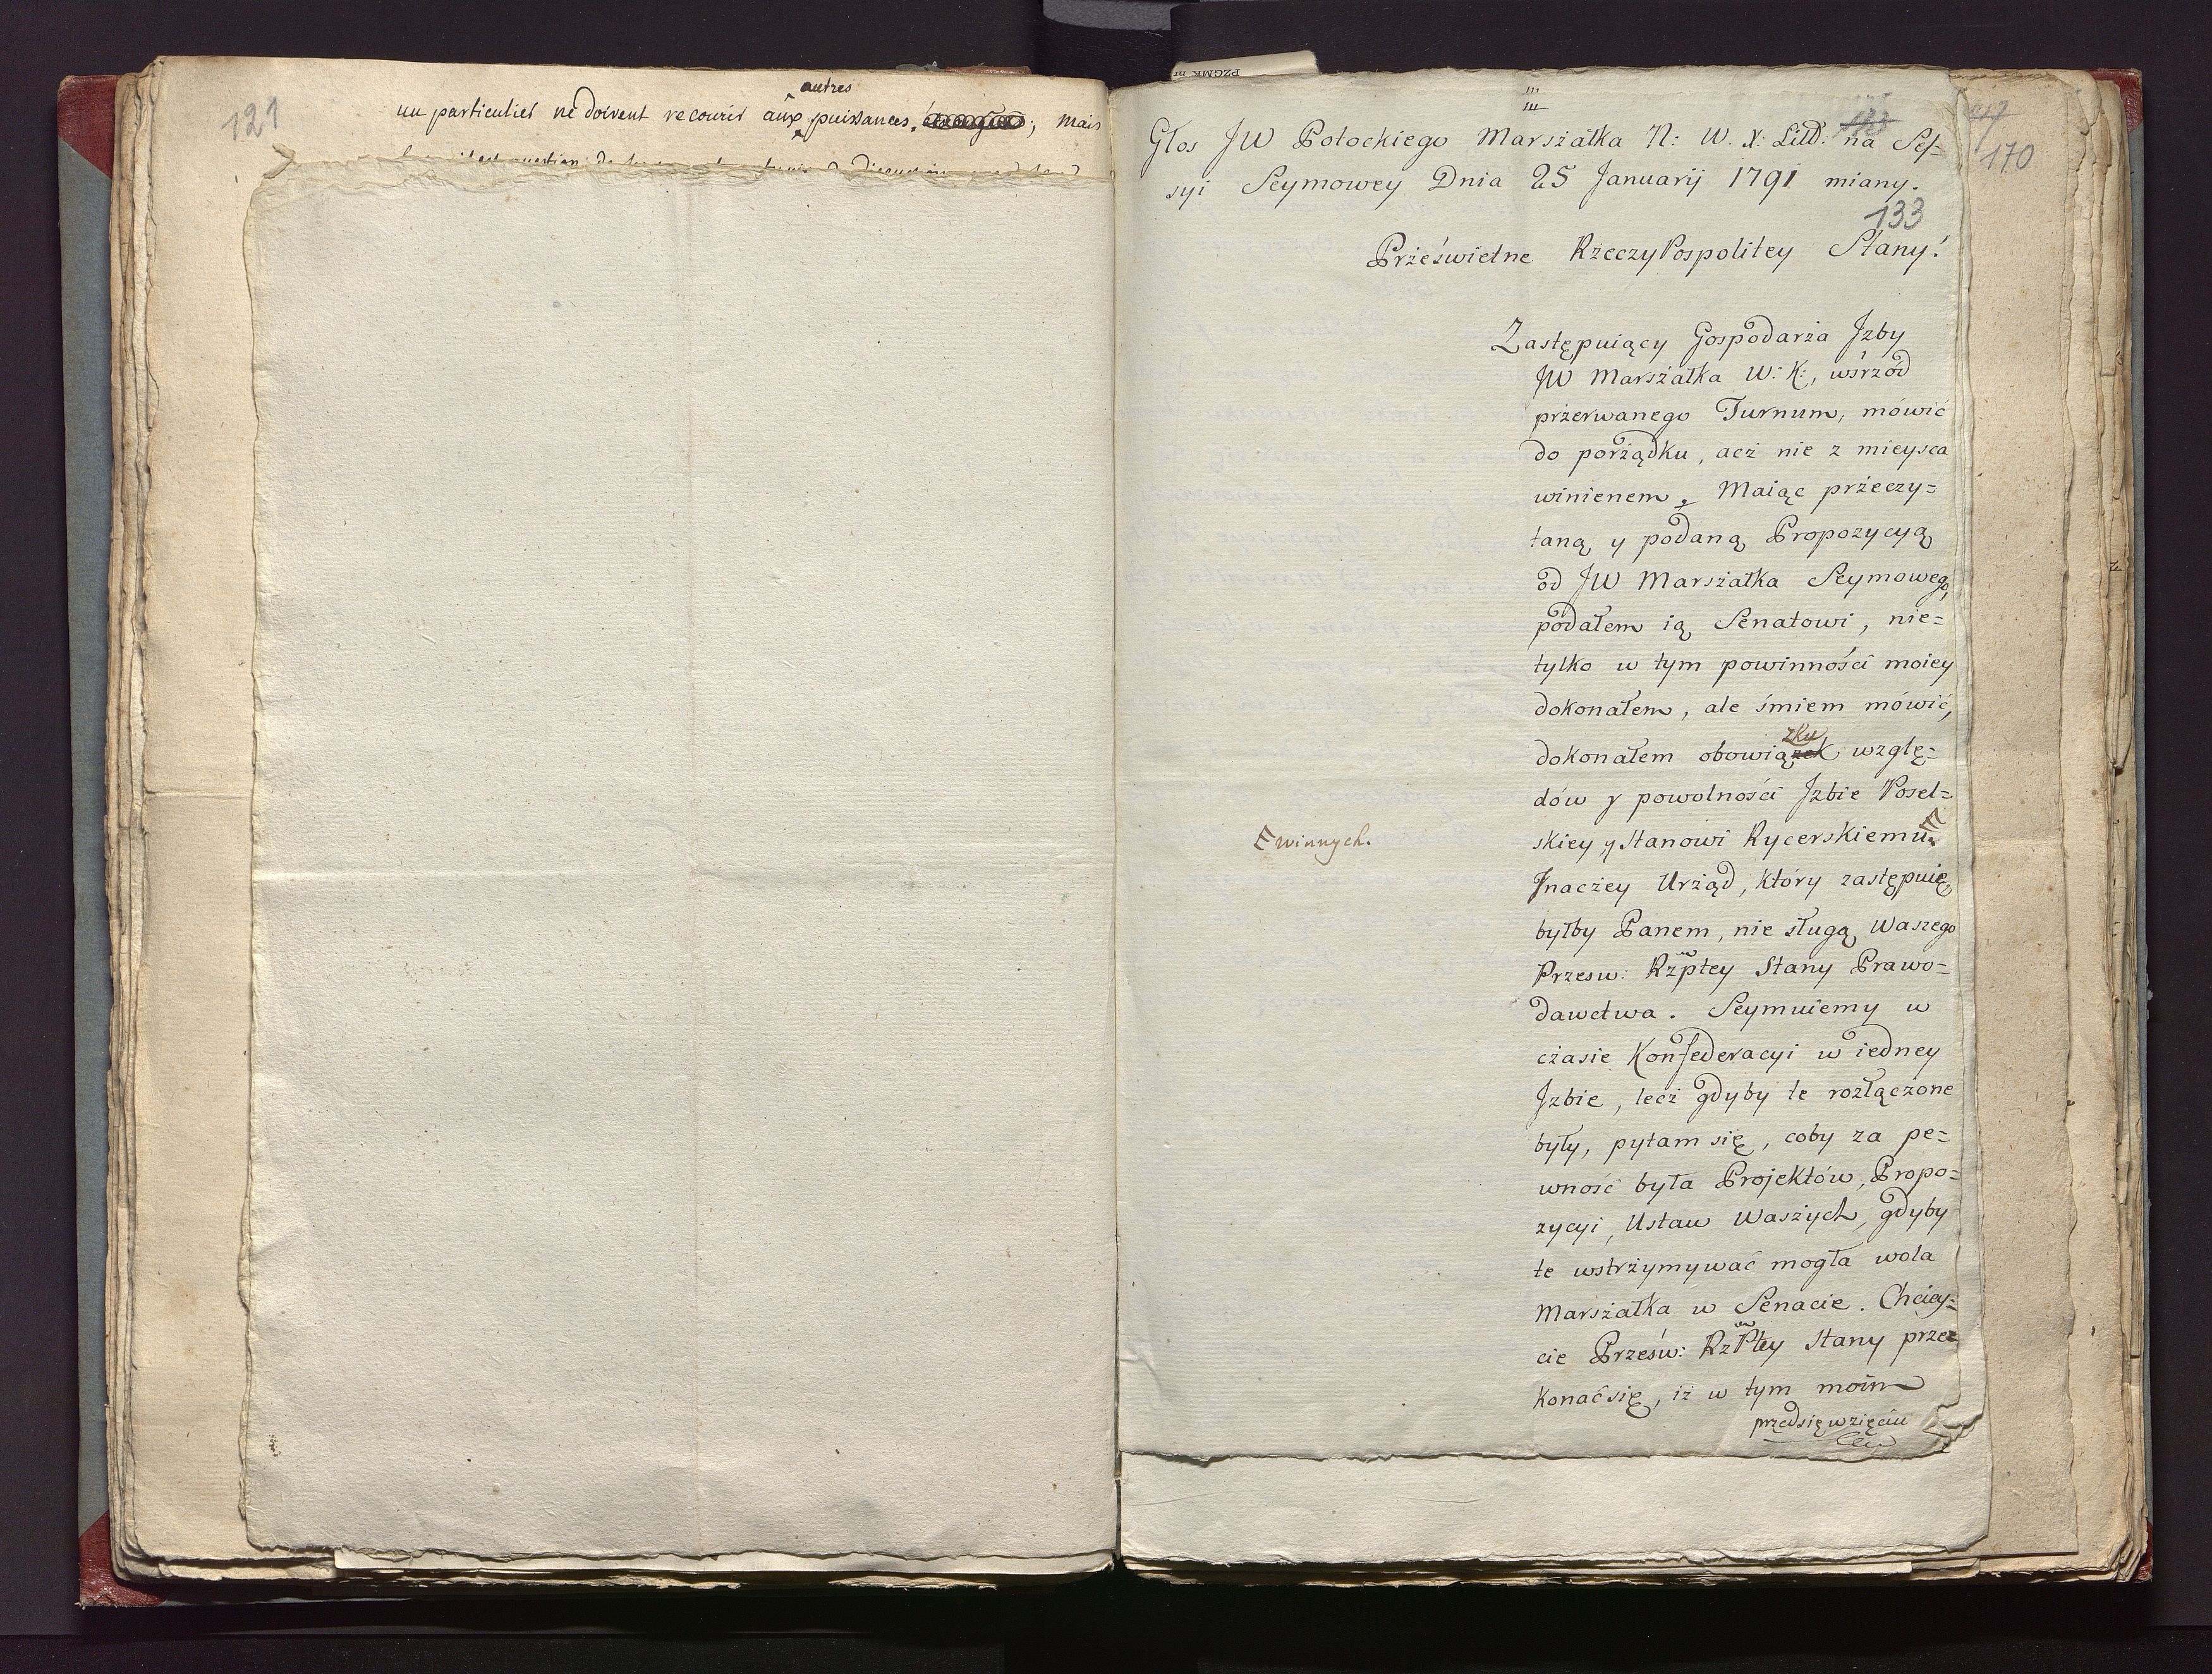 121
autres
un particulier ne doivent recourir aux puissances, ; mais
PZGMK nr
Głos JW Potockiego Marszałka N: W. X: Litt: na Ses=
syi Seymowey Dnia 25 Januarij 1791 miany.
170
133
Prześwietne RzeczyPospolitey Stany!
Zastępuiący Gospodarza Jzby
JW Marszałka W: K:, wśrzód
przerwanego Turnum, mówić
do porządku, acż nie z mieysca
winienem, Maiąc przeczy=
taną y podaną Propozycyą
od JW Marszałka Seymowego,
podałem ią Senatowi, nie=
tylko w tym powinności moiey
dokonałem, ale śmiem mówić,
zku
dokonałem obowiązek wzglę=
dów y powolności Jzbie Posel=
skiey y Stanowi Rycerskiemu.
winnych.
Jnaczey Urząd, który zastępuię
byłby Panem, nie sługą Waszego
Przesw: Rzptey Stany Prawo=
dawctwa. Seymuiemy w
czasie Konfederacyi w iedney
Jzbie, lecż gdyby te rozłączone
były, pytam się, coby za pe=
wność była Projektów, Propo=
zycyi, Ustaw Waszych, gdyby
te wstrzymywać mogła wola
Marszałka w Senacie. Chciey=
cie Przesw: RzPtey Stany prze
konać się, iż w tym moim
przedsięwzięciu